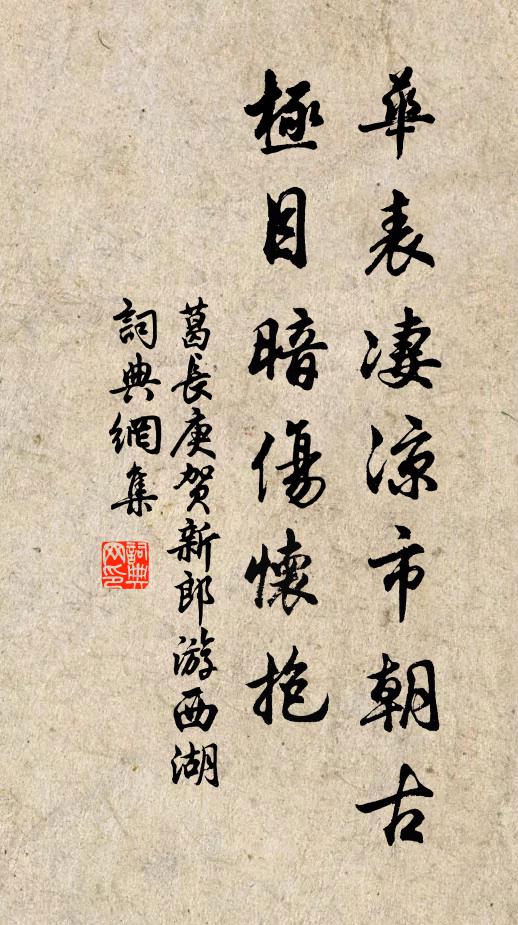 華表淒涼市朝古
極目暗傷懷抱
葛長庚賀新郎游西湖
詞典網集
詞典網印